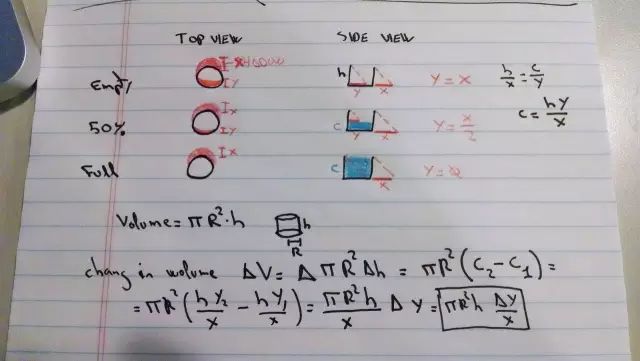 TOP VIEW SIDE VIEW
Empty I x I y h y x y = x h/x = c/y
50% I x I y c y x y = x/2 c = hy/x
Full I x c x
Volume = π R² · h h R
chang in wolume ΔV = Δ π R² Δh = π R² (C₂ - C₁) =
= π R² (h y₂/x - h y₁/x) = π R² h/x Δ y = π R² h Δy/x